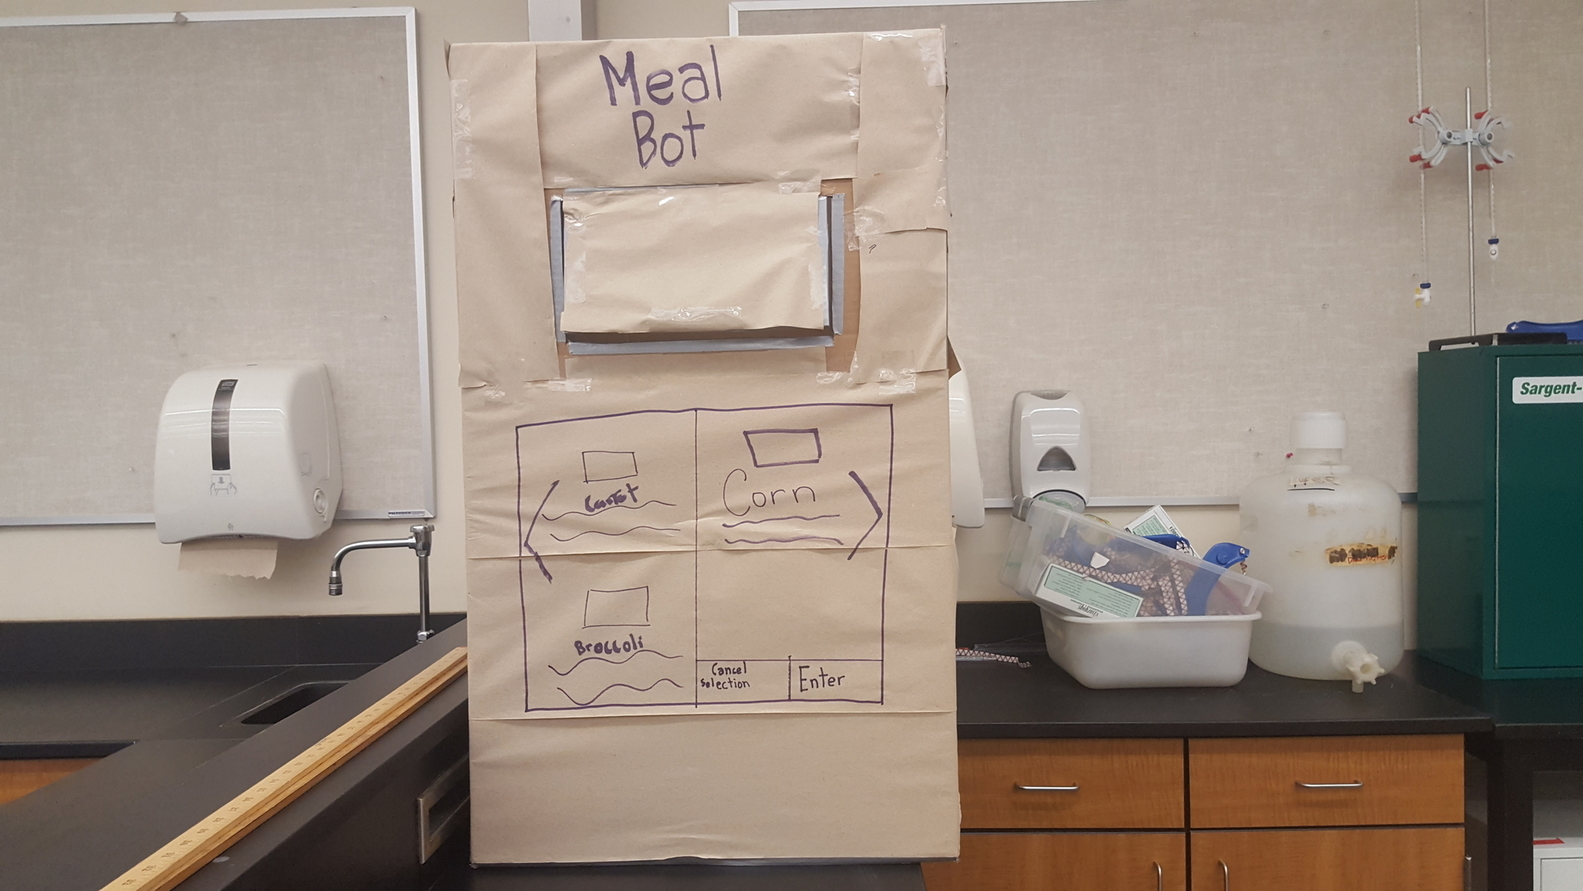 Meal
Bot
Carrot
Corn
Broccoli
Cancel
Selection
Enter
Sargent-